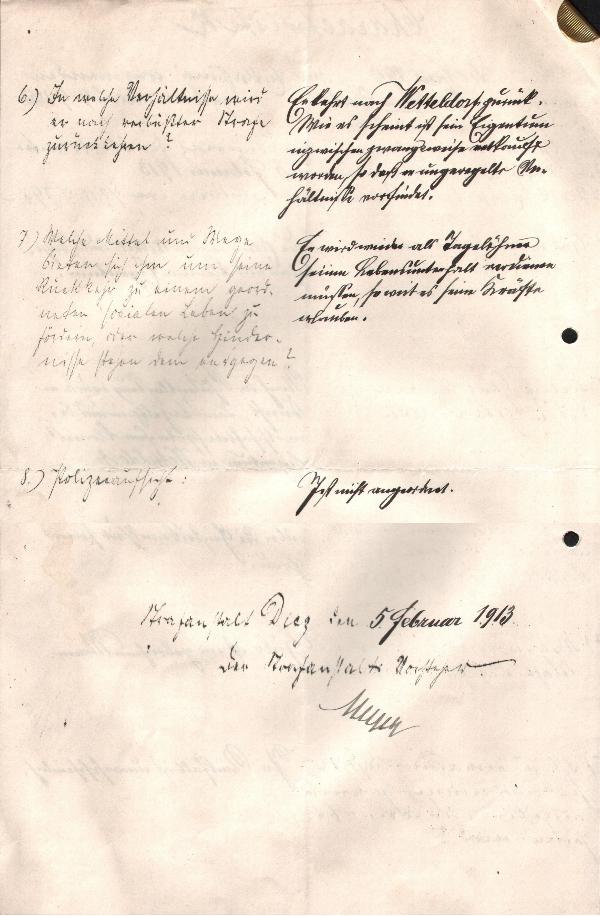 6.) In welche Verhältnisse wird
er nach verbüßter Strafe
zurückkehren?
Er kehrt nach Wetteldorf zurück.
Wie es scheint ist sein Eigentum
inzwischen zwangsweise verkauft
worden, so daß er ungeregelte Ver-
hältnisse vorfindet.
7.) Welche Mittel und Wege
bieten sich ihm, um seine
Rückkehr zu einem geord-
neten sozialen Leben zu
fördern, oder welche Hinder-
nisse stehen dem entgegen?
Er wird wieder als Tagelöhner
seinen Lebensunterhalt verdienen
müssen, soweit es seine Kräfte
erlauben.
8.) Polizeiaufsicht:
Ist nicht angeordnet.
Strafanstalt Diez den 5. Februar 1913
Der Strafanstalts Vorsteher.